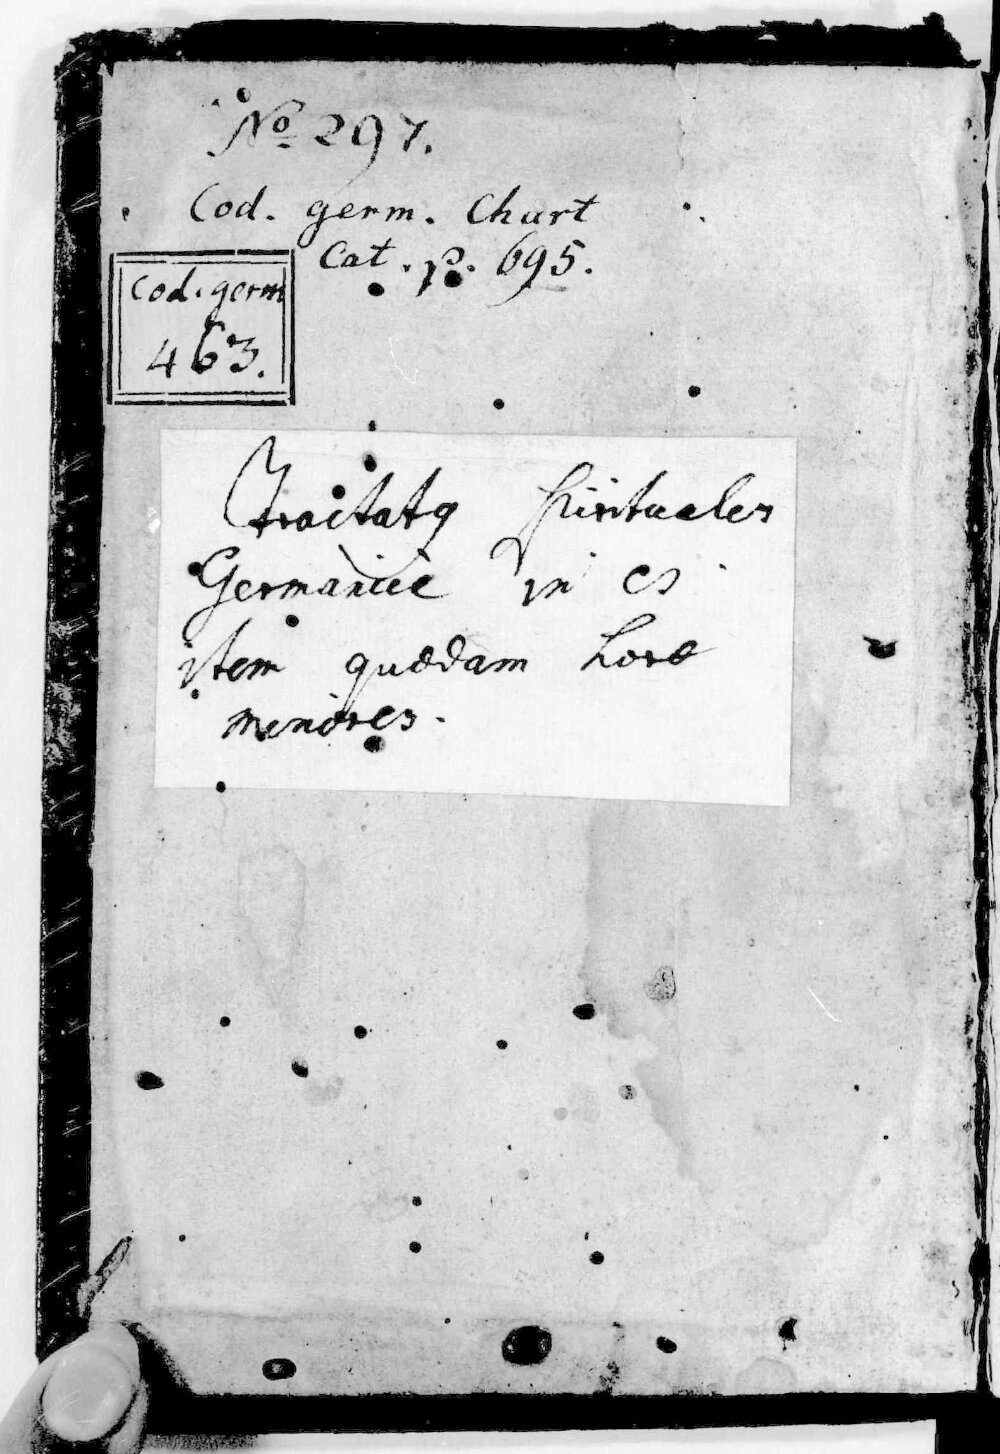 No 297.
Cod. germ. Chart
Cat. p. 695.
Cod. germ
463.
Tractatꝯ spirituales
Germanice in
item quædam horæ
minores.